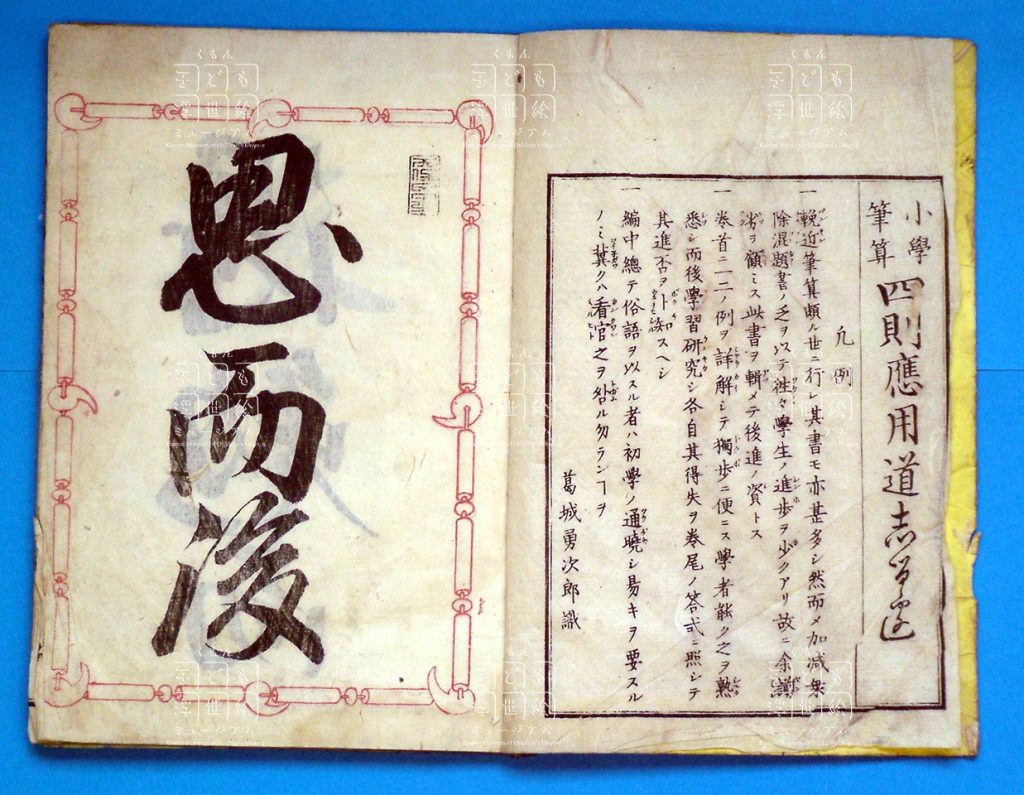 小學
筆算
四則應用道志る邊
凡例
一 輓近筆算頗ル世ニ行レ其書モ亦甚多シ然而〆加減乗
除混題書ノ乏ヲ以テ徃々學生ノ進歩ヲ少クアリ故ニ余譾
劣ヲ顧ミス此書ヲ輯メテ後進ノ資トス
一 巻首ニ一二ノ例ヲ詳解シテ獨歩ニ便ニス學者能ク之ヲ熟
悉シ而後學習研究シ各自其得失ヲ巻尾ノ答式ニ照シテ
其進否ヲ卜知スヘシ
一 編中總テ俗語ヲ以スル者ハ初學ノ通曉シ易キヲ要スル
ノミ冀クハ看官之ヲ咎ル勿ランヿヲ
葛城勇次郎識
思而後
くもん
子ども
浮世絵
ミュージアム